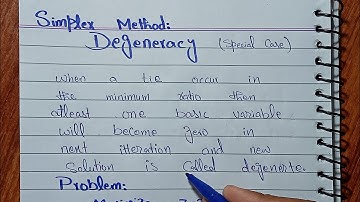 Simplex Method:
Degeneracy (Special Case)
When a tie occur in
the minimum ratio then
atleast one basic variable
will become zero in
next itteration and new
Solution is called degenerte.
Problem: